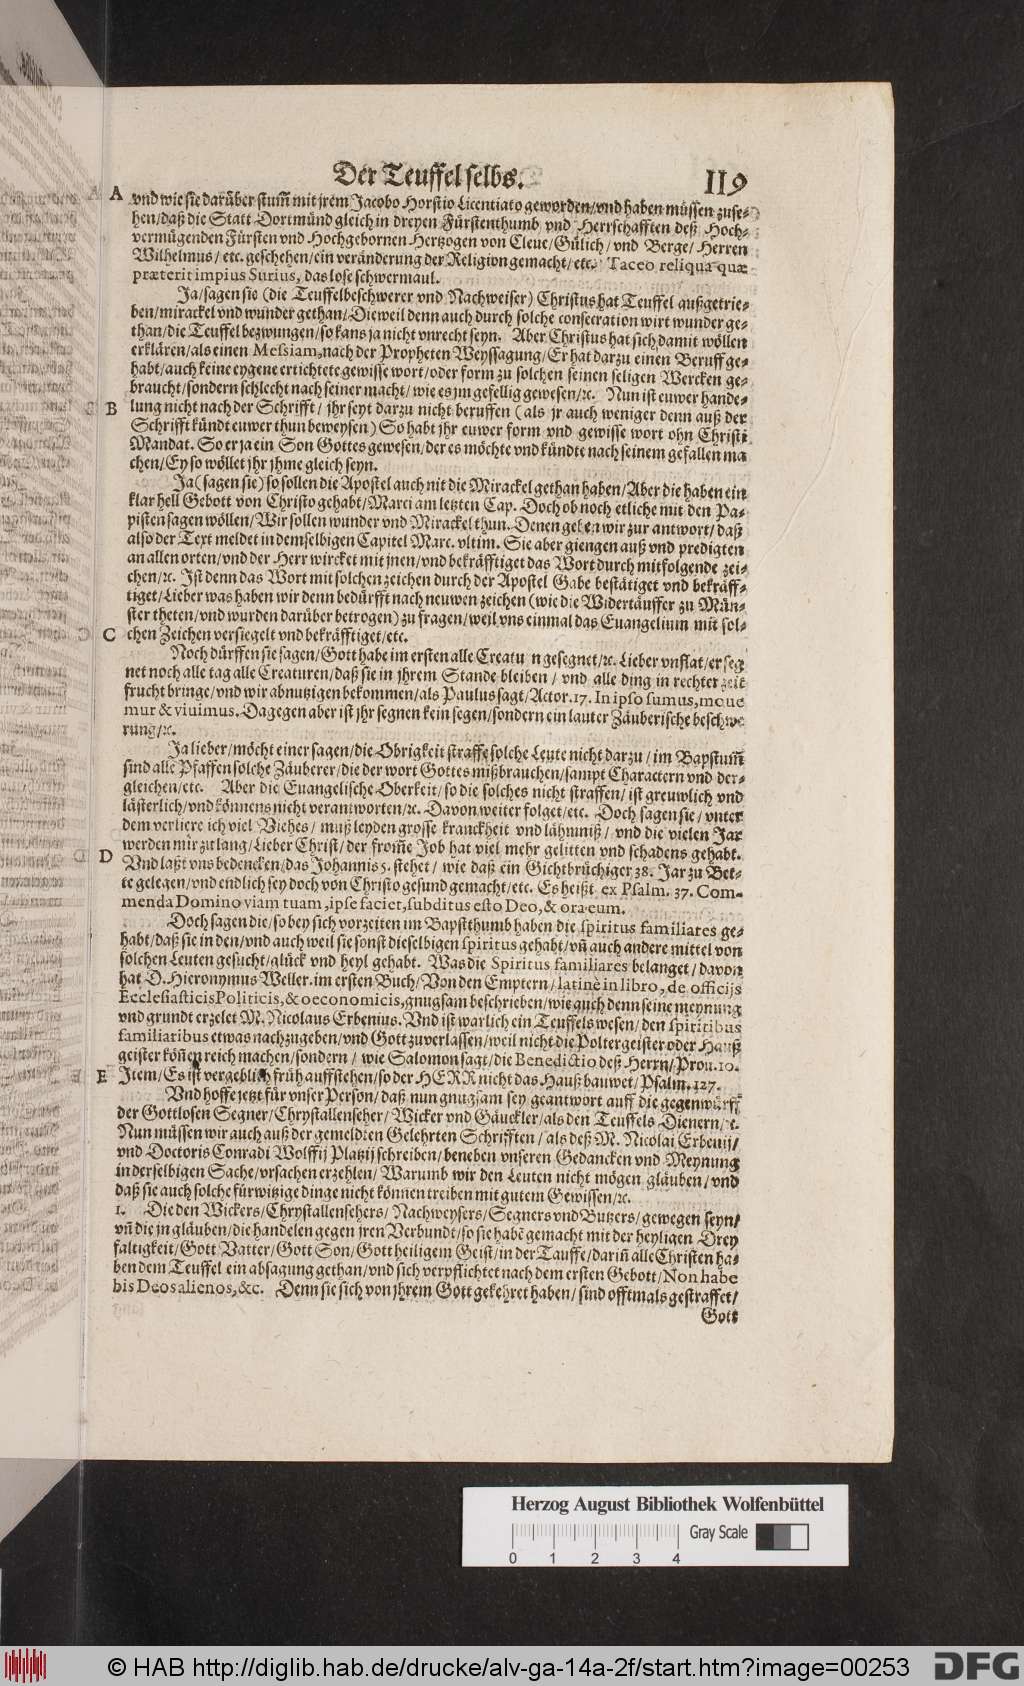 Der Teuffel selbs. 119
A vnd wie sie darüber stum̃ mit jrem Jacobo Horstio Licentiato geworden/vnd haben müssen zuse-
hen/daß die Statt Dortmünd gleich in dreyen Fürstenthumb vnd Herrschafften deß Hoch-
vermügenden Fürsten vnd Hochgebornen Hertzogen von Cleue/Gülich/vnd Berge/Herren
Wilhelmus/etc. geschehen/ein veränderung der Religion gemacht/etc. Taceo reliqua quæ
præterit impius Surius, das lose schwermaul.
Ja/sagen sie (die Teuffelbeschwerer vnd Nachweiser) Christus hat Teuffel außgetrie-
ben/mirackel vnd wunder gethan/Dieweil denn auch durch solche consecration wirt wunder ge-
than/die Teuffel bezwungen/so kans ja nicht vnrecht seyn. Aber Christus hat sich damit wöllen
erklären/als einen Messiam, nach der Propheten Weyssagung/Er hat darzu einen Beruff ge-
habt/auch keine eygene ertichtete gewisse wort/oder form zu solchen seinen seligen Wercken ge-
braucht/sondern schlecht nach seiner macht/wie es jm gefellig gewesen/ꝛc. Nun ist euwer hande-
B lung nicht nach der Schrifft/jhr seyt darzu nicht beruffen (als jr auch weniger denn auß der
Schrifft kündt euwer thun beweysen) So habt jhr euwer form vnd gewisse wort ohn Christi
Mandat. So er ja ein Son Gottes gewesen/der es möchte vnd kündte nach seinem gefallen ma
chen/Ey so wöllet jhr jhme gleich seyn.
Ja (sagen sie) so sollen die Apostel auch nit die Mirackel gethan haben/Aber die haben ein
klar hell Gebott von Christo gehabt/Marci am letzten Cap. Doch ob noch etliche mit den Pa-
pisten sagen wöllen/Wir sollen wunder vnd Mirackel thun. Denen geben wir zur antwort/daß
also der Text meldet in demselbigen Capitel Marc. vltim. Sie aber giengen auß vnd predigten
an allen orten/vnd der Herr wircket mit jnen/vnd bekräfftiget das Wort durch mitfolgende zei-
chen/ꝛc. Ist denn das Wort mit solchen zeichen durch der Apostel Gabe bestätiget vnd bekräff-
tiget/Lieber was haben wir denn bedürfft nach neuwen zeichen (wie die Widertäuffer zu Mün-
ster theten/vnd wurden darüber betrogen) zu fragen/weil vns einmal das Euangelium mit sol-
C chen Zeichen versiegelt vnd bekräfftiget/etc.
Noch dürffen sie sagen/Gott habe im ersten alle Creatu n gesegnet/ꝛc. Lieber vnflat/er seg
net noch alle tag alle Creaturen/daß sie in jhrem Stande bleiben/vnd alle ding in rechter zeit
frucht bringe/vnd wir abnutzigen bekommen/als Paulus sagt/Actor. 17. In ipso sumus, moue
mur & viuimus. Dagegen aber ist jhr segnen kein segen/sondern ein lauter Zäuberische beschwe
rung/ꝛc.
Ja lieber/möcht einer sagen/die Obrigkeit straffe solche Leute nicht darzu/im Bapstum̃
sind alle Pfaffen solche Zäuberer/die der wort Gottes mißbrauchen/sampt Charactern vnd der-
gleichen/etc. Aber die Euangelische Oberkeit/so die solches nicht straffen/ist greuwlich vnd
lästerlich/vnd können s nicht verantworten/ꝛc. Davon weiter folget/etc. Doch sagen sie/vnter
dem verliere ich viel Viehes/muß leyden grosse kranckheit vnd lähmniß/vnd die vielen Jar
werden mir zu lang/Lieber Christ/der from̃e Job hat viel mehr gelitten vnd schadens gehabt.
D Vnd laßt vns bedencken/das Johannis 5. stehet/wie daß ein Gichtbrüchiger 38. Jar zu Bet-
te gelegen/vnd endlich sey doch von Christo gesund gemacht/etc. Es heißt ex Psalm. 37. Com-
menda Domino viam tuam, ipse faciet, subditus esto Deo, & ora eum.
Doch sagen die/so bey sich vorzeiten im Bapstthumb haben die spiritus familiares ge-
habt/daß sie in den/vnd auch weil sie sonst dieselbigen spiritus gehabt/vñ auch andere mittel von
solchen Leuten gesucht/glück vnd heyl gehabt. Was die Spiritus familiares belanget/davon
hat D. Hieronymus Weller im ersten Buch/Von den Emptern/latinè in libro, de officijs
Ecclesiasticis Politicis, & oeconomicis, gnugsam beschrieben/wie auch denn seine meynung
vnd grundt erzelet M. Nicolaus Erbenius. Vnd ist warlich ein Teuffels wesen/den spiritibus
familiaribus etwas nachzugeben/vnd Gott zuverlassen/weil nicht die Poltergeister oder Hauß
geister kön̄en reich machen/sondern/wie Salomon sagt/die Benedictio deß Herrn/Prou. 10.
E Item/Es ist vergeblich früh auffstehen/so der HERR nicht das Hauß bauwet/Psalm. 127.
Vnd hoffe jetzt für vnser Person/daß nun gnugsam sey geantwort auff die gegenwürff
der Gottlosen Segner/Chrystallenseher/Wicker vnd Gäuckler/als den Teuffels Dienern/ꝛc.
Nun müssen wir auch auß der gemeldten Gelehrten Schrifften/als deß M. Nicolai Erbenij/
vnd Doctoris Conradi Wolffij Platzij schreiben/beneben vnseren Gedancken vnd Meynung
in derselbigen Sache/vrsachen erzehlen/Warumb wir den Leuten nicht mögen gläuben/vnd
daß sie auch solche fürwitzige dinge nicht können treiben mit gutem Gewissen/ꝛc.
1. Die den Wickers/Chrystallensehers/Nachweysers/Segners vnd Butzers/gewegen seyn/
vñ die jn gläuben/die handelen gegen jren Verbundt/so sie habẽ gemacht mit der heyligen Drey
faltigkeit/Gott Vatter/Gott Son/Gott heiligem Geist/in der Tauffe/darin̄ alle Christen ha-
ben dem Teuffel ein absagung gethan/vnd sich verpflichtet nach dem ersten Gebott/Non habe
bis Deos alienos, &c. Denn sie sich von jhrem Gott gekehret haben/sind offtmals gestraffet/
Gott
Herzog August Bibliothek Wolfenbüttel
Gray Scale
0 1 2 3 4
© HAB http://diglib.hab.de/drucke/alv-ga-14a-2f/start.htm?image=00253 DFG